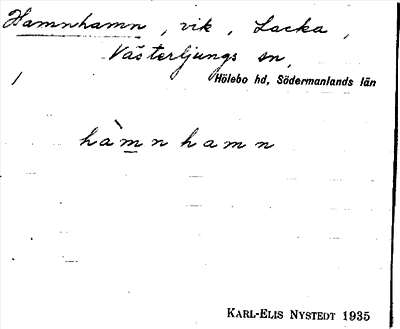 Hamnhamn, vik, Lacka,
Västerljungs sn,
/ Hölebo hd, Södermanlands län
hàmnhamn
KARL-ELIS NYSTEDT 1935